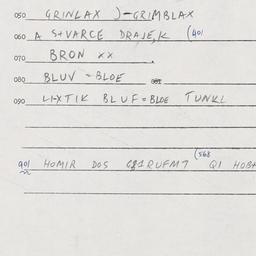 050 GRINLAX )-GRIMBLAX
060 A S+VARCE DRAJE,K (901
070 BRON xx .
080 BLUV - BLOE
090 LI-XTIK BLUF=BLOE TUNKL
901 HOMIR DOS (568 QI HOBH